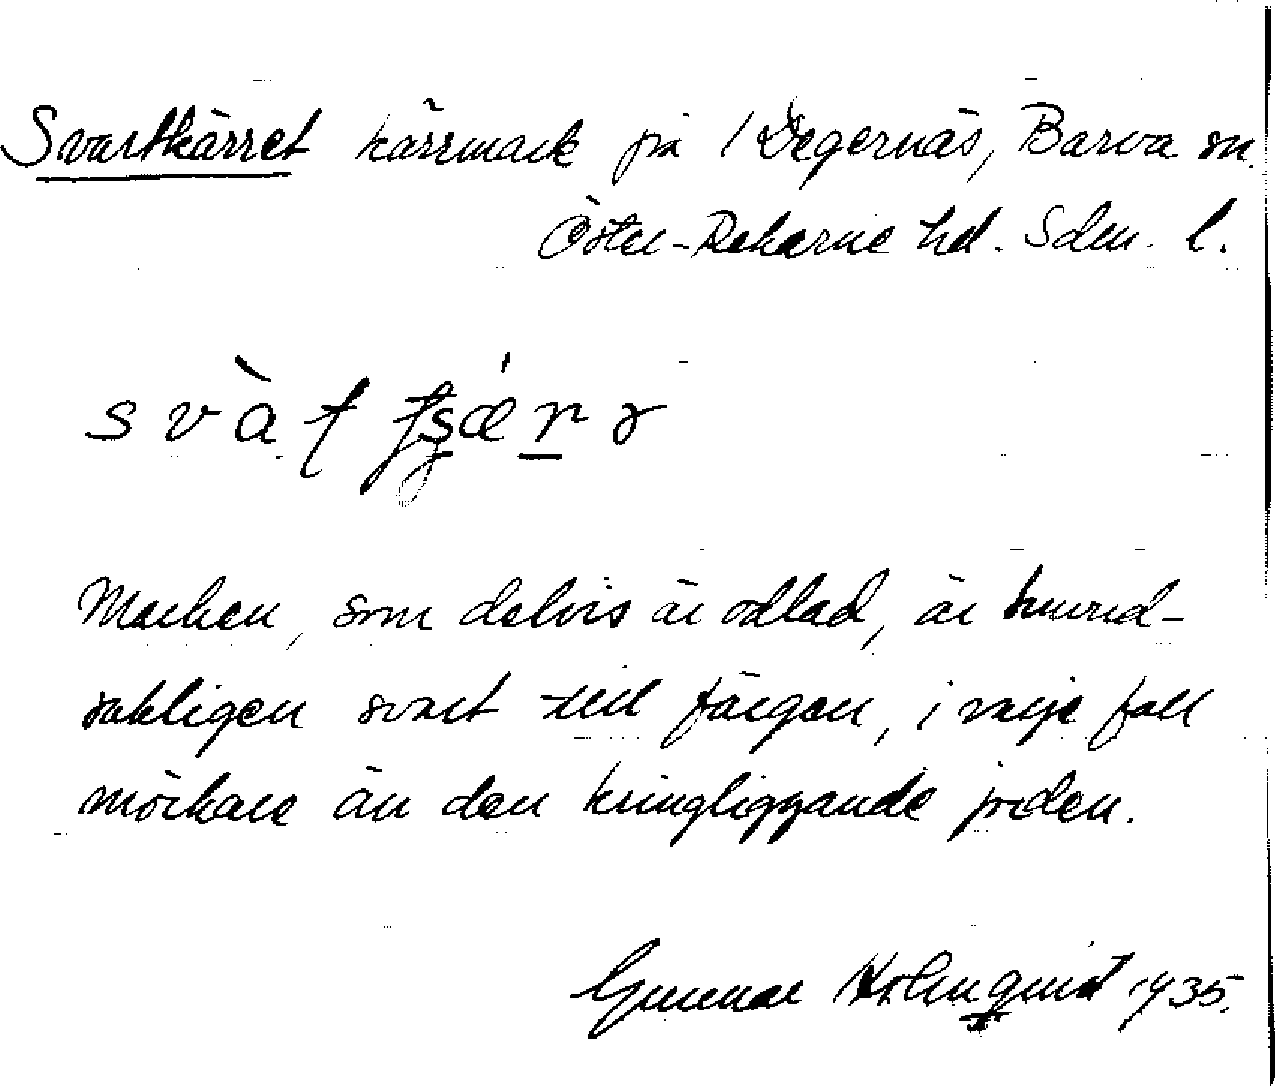 Svartkärret kärrmark på 1 Degernäs, Barva sn.
Öster-Rekarne hd. Södm. l.
Marken, som delvis är odlad, är huvud-
sakligen svart till färgen, i varje fall
mörkare än den kringliggande jorden.
Gunnar Holmquist 1935.